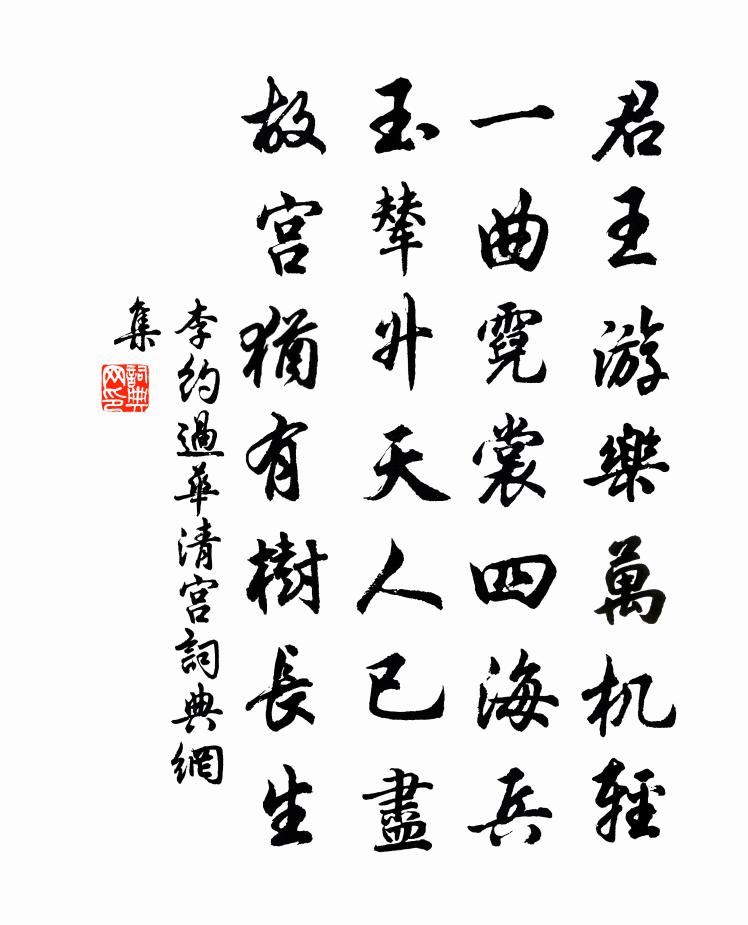 君王游樂萬机輕
一曲霓裳四海兵
玉輦升天人已盡
故宮猶有樹長生
李約過華清宮詞典網
集
詞典
网印